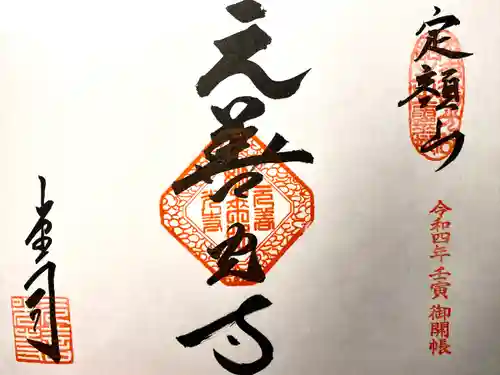 定額山
令和四年壬寅御開帳
元善光寺
堂司